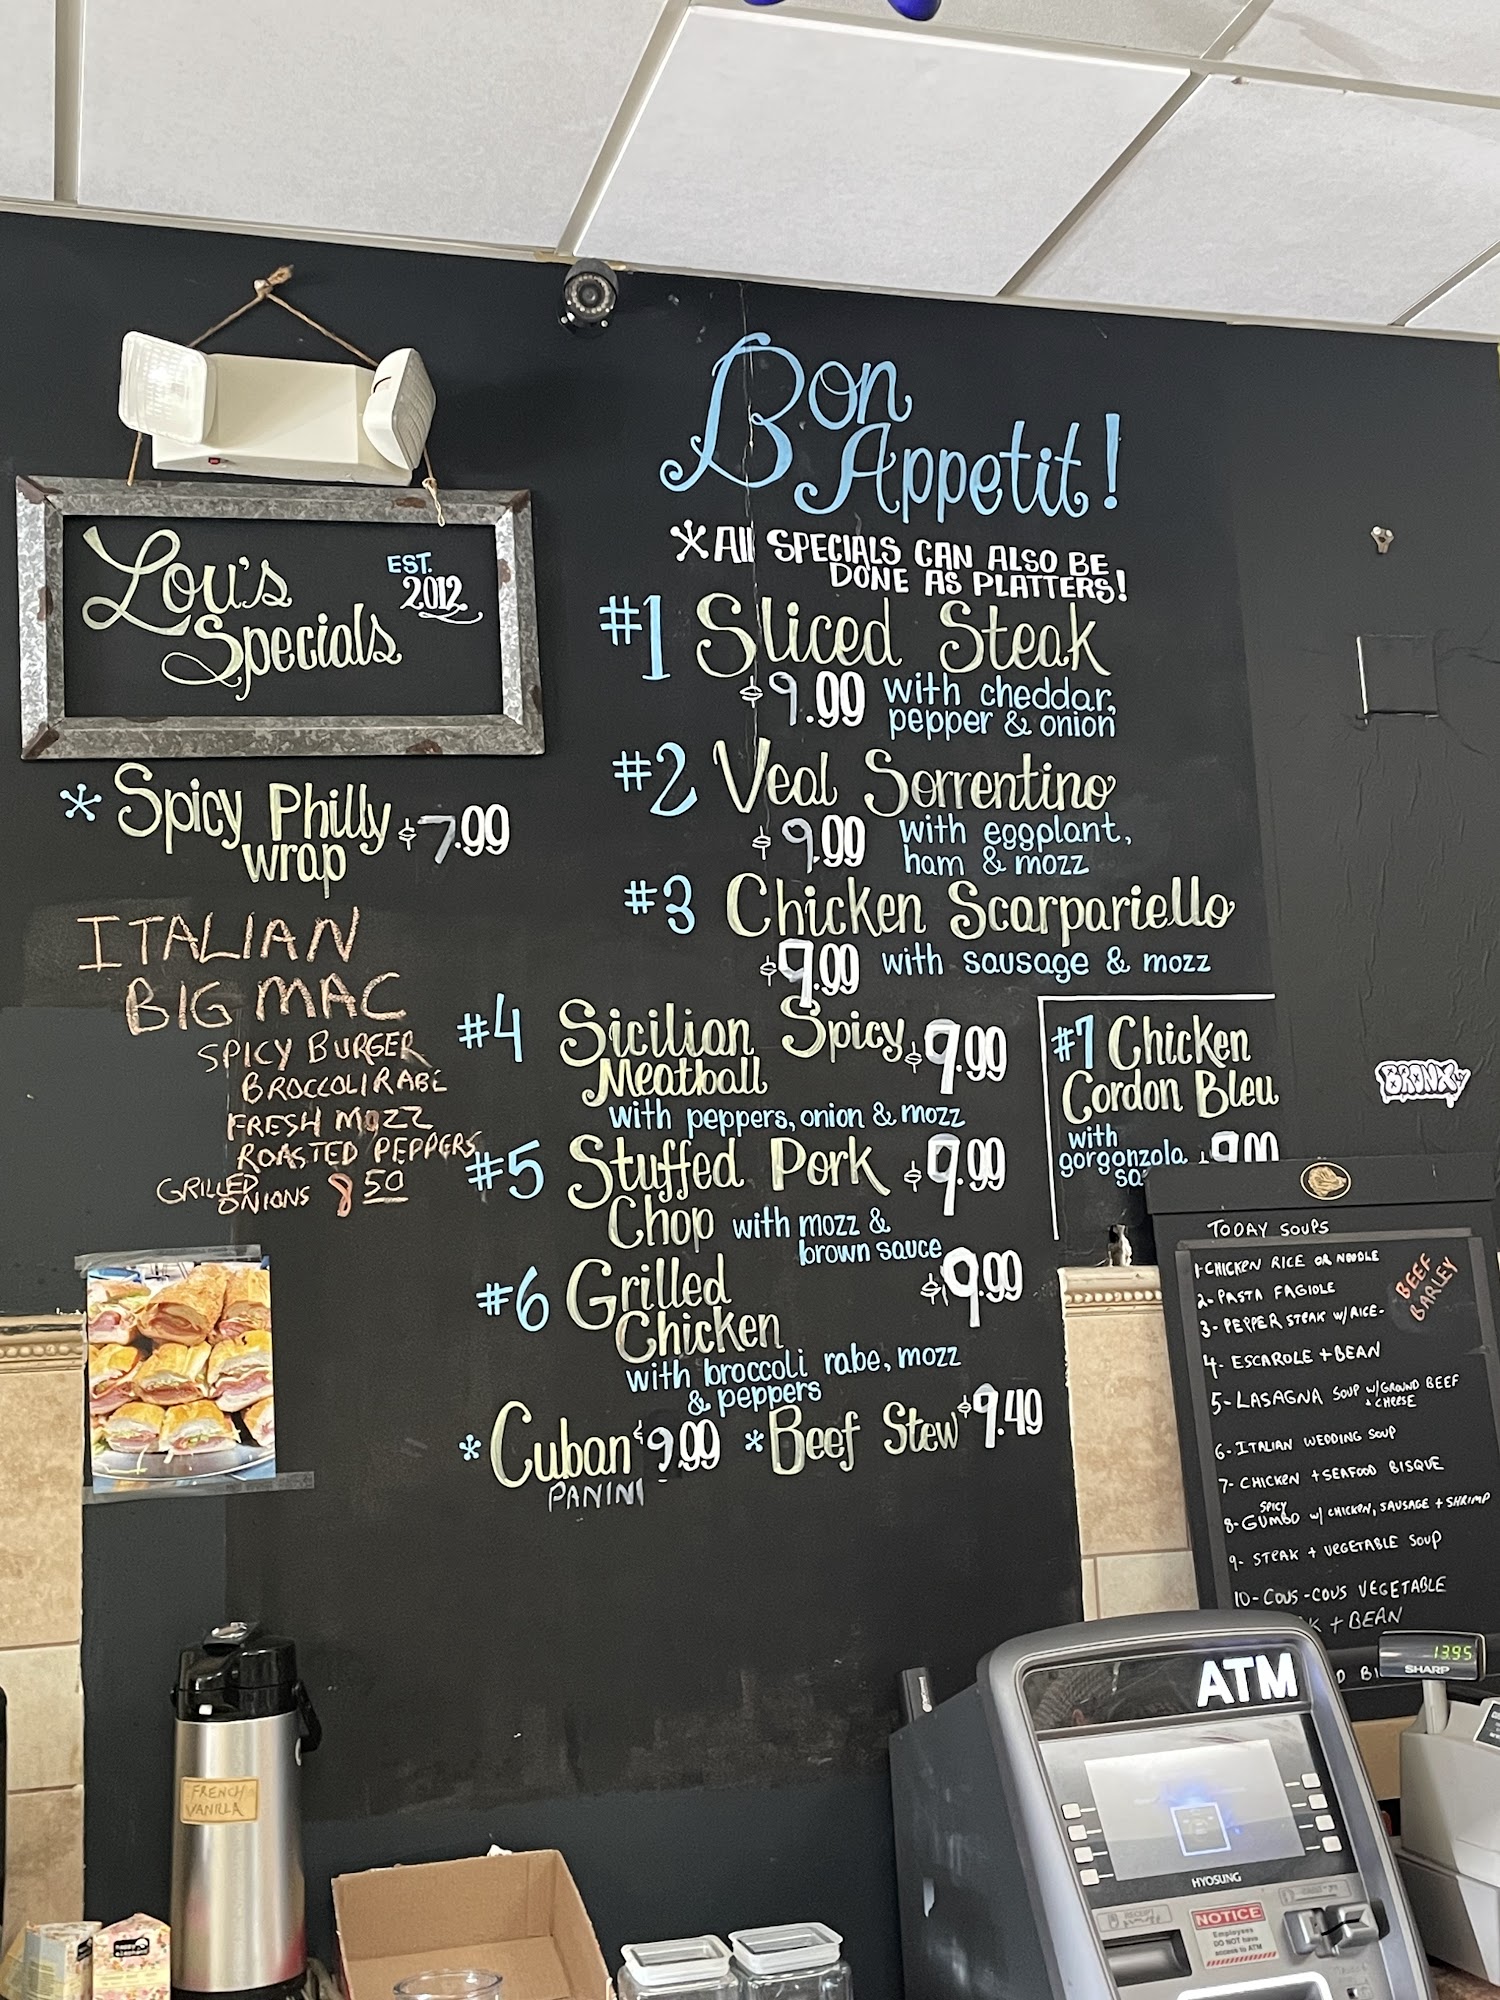 Lou's
Specials
EST.
2012
* Spicy Philly $7.99
wrap
ITALIAN
BIG MAC
SPICY BURGER
BROCCOLI RABE
FRESH MOZZ
ROASTED PEPPERS
GRILLED
ONIONS 8 50
Bon
Appetit!
*All SPECIALS CAN ALSO BE
DONE AS PLATTERS!
#1 Sliced Steak
$9.99 with cheddar,
pepper & onion
#2 Veal Sorrentino
$9.99 with eggplant,
ham & mozz
#3 Chicken Scarpariello
$9.99 with sausage & mozz
#4 Sicilian Spicy $9.99
Meatball
with peppers, onion & mozz
#5 Stuffed Pork $9.99
Chop with mozz &
brown sauce
#6 Grilled $9.99
Chicken
with broccoli rabe, mozz
& peppers
*Cuban $9.99 *Beef Stew $9.49
PANINI
#7 Chicken
Cordon Bleu
with
gorgonzola
BRONX
TODAY SOUPS
1-CHICKEN RICE OR NOODLE
2-PASTA FAGIOLE
3-PEPPER STEAK W/RICE-
4-ESCAROLE + BEAN
5-LASAGNA SOUP W/GROUND BEEF
+ CHEESE
6-ITALIAN WEDDING SOUP
7-CHICKEN + SEAFOOD BISQUE
SPICY
8-GUMBO W/ CHICKEN, SAUSAGE + SHRIMP
9-STEAK + VEGETABLE SOUP
10-COUS-COUS VEGETABLE
+ BEAN
BEEF
BARLEY
13.95
SHARP
ATM
HYOSUNG
NOTICE
Employees
DO NOT have
access to ATM
RECEIPT
FRENCH
VANILLA